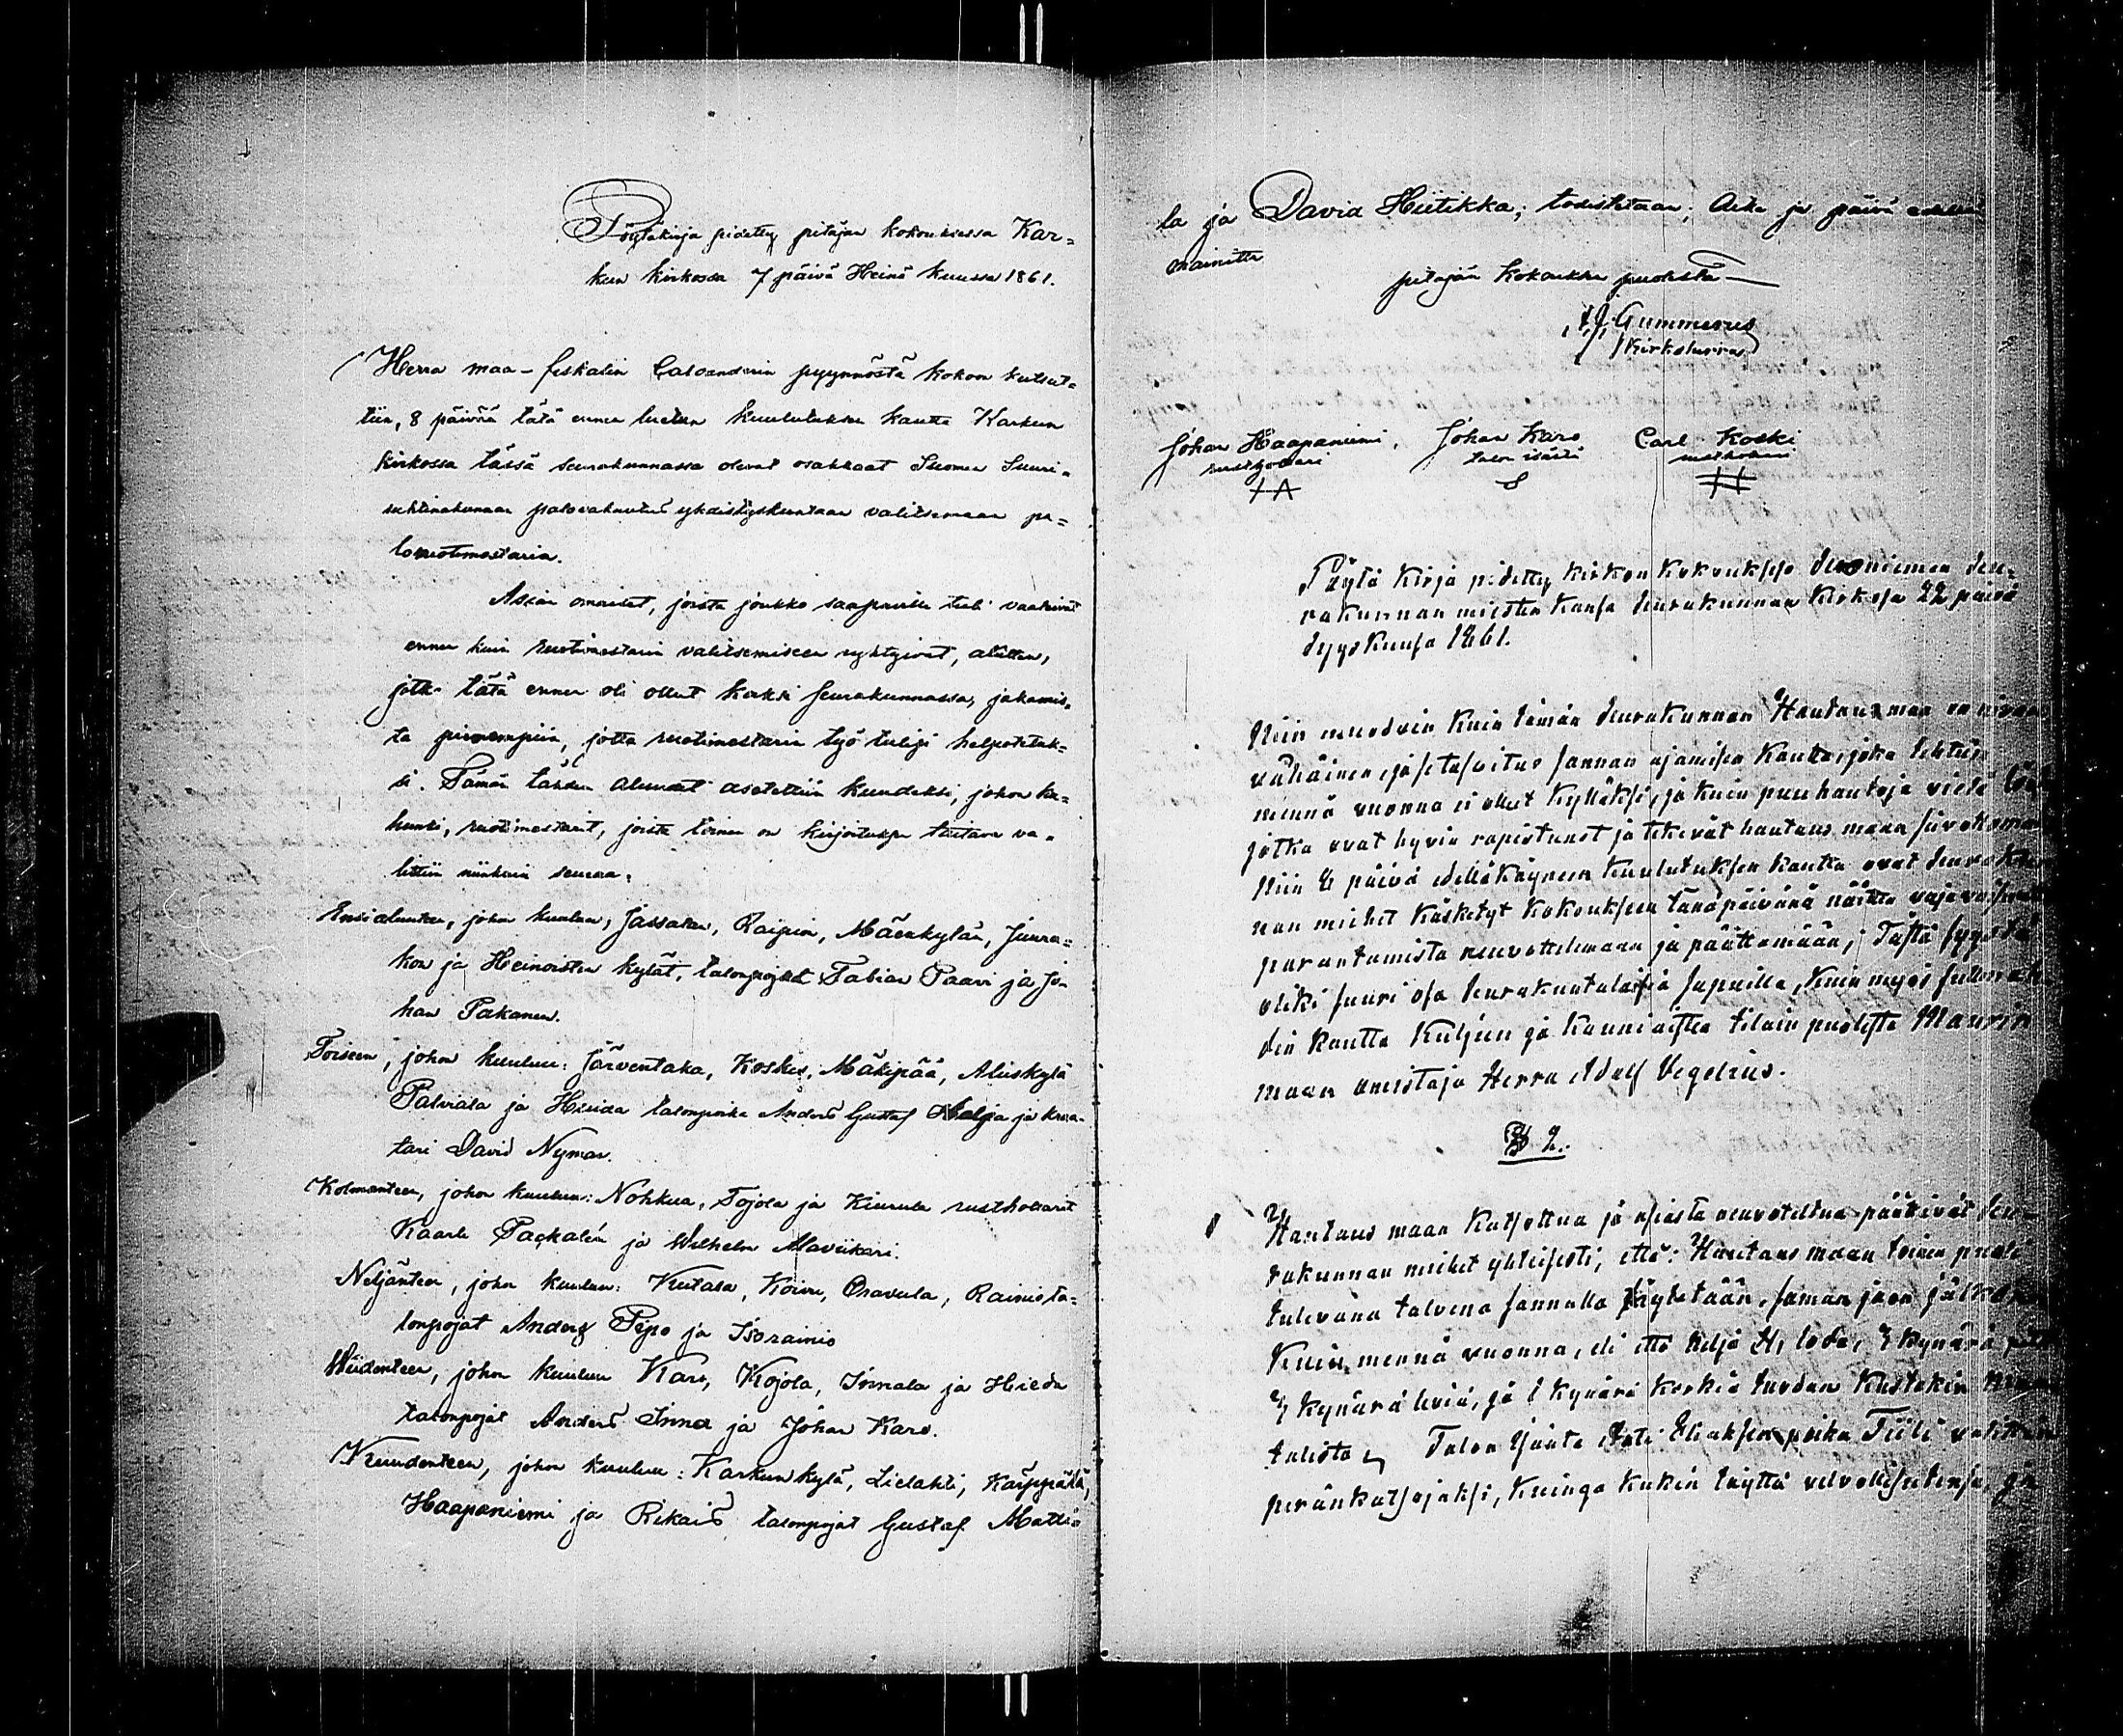 Pöytäkirja pidetty pitäjän kokouksessa Kar=
kun kirkossa 7 päivä Heinä kuussa 1861.
Herra maa-fiskalin pyynnöstä kokoon kutsut=
tiin, 8 päivää tätä ennen luetun kuulutuksen kautta Karkun
kirkossa tässä seurakunnassa olevat osakkaat Suomen Suuri=
ruhtinakunnan palovakuutus yhdistyskuntaan valitsemaan pa=
loruotimestaria.
Asian omaiset, joista joukko saapuville tuli vaativat
ennen kuin ruotimestarin valitsemiseen ryhtyivät, alütten,
joita tätä ennen oli ollut kaksi seurakunnassa, jakamis=
ta pienempiin, jotta ruotimestarin työ tulisi helpotetuk=
si. Tämän tähden aluudet asetettiin kuudeksi, johon ka=
huusi, ruotimestarit, joista toinen on kirjoitukseen taitava va=
littiin niinkuin seuraa:
Ensi aluuteen, johon kuuluu, Jassalan, Raipion, Mäenkylän, Juura=
kon ja Heinoisten kylät, talonpojat Fabian Paavi ja Jo=
han Pakanen.
Toiseen, johon kuuluu: Järventaka, Koskis, Mäkipää, Aluskylä
Palviala ja Hiuida talonpoika Anders Gustaf ja kraa=
tari David Nyman.
Kolmanteen, johon kuuluu: Nohkua, Tojola ja Kiurula rusthollarit
Kaarle Packalén ja Wilhelm Alaviikari.
Neljänteen, johon kuuluu: Kutala, Koivu, Oravula, Rainio ta=
lonpojat Anders Pepo ja Isorainio
Wiidenteen, johon kuuluu Karo, Kojola, Innala ja Hieda
talonpojat Anders Inna ja Johan Karo.
Kuudenteen, johon kuuluu: Karkunkylä, Lielahti, Käppälä,
Haapaniemi ja Rikais talonpojat Gustaf Matti=
la ja David Hiitikka; todistetaan; Aika ja päivä edellä
mainittu
pitäjän kokouksen puolesta
Gummerus
Kirkoherra
Johan Haapaniemi, Johan Karo Carl Koski
rusthollari talon isäntä rusthollari
Pöytä kirja pidetty kirkon kokouksessa Suoniemen Seu=
rakunnan miesten kansa Seurakunnan kirkossa 22 päivä
Syyskuussa 1861.
Niin muodoin kuin tämän Seurakunnan Hautausmaa on
vähäinen, ja se tasoitus sannan ajamisen kautta, joka tehtiin
mennä vuonna ei ollut kylläksi, ja kuin puuhautoja vielä
jotka ovat hyvin rapistunet ja tekevät hautaus maan
niin 8 päivä edelläkäyneen kuulutuksen kautta ovat Seurakun
nan miehet käsketyt kokoukseen tänäpäivänä näitten
parantamista neuvottelemaan ja päättämään; Tästä syystä
oliki suuri osa Seurakuntalaisia sapuilla, kuin myös
din kautta Kuljun ja Kauniaisten tilain puolesta
maan omistaja Herra Adolf Vegelius.
§ 2.
Hautaus maan katsottua ja asiasta neuvoteltua päättivät Seu=
rakunnan miehet yhteisesti, että: Hautaus maan toinen puoli
tulevana talvena sannalla täytetään, saman jaon jälkeen
kuin mennä vuonna, eli että neljä kynärä
kynärä leviä, ja 1 kynärä korkia
talista Talon Isäntä Anti Eliaksen poika Tiili
peränkatsojaksi, kuinga kukin täyttä velvollisutensa, ja